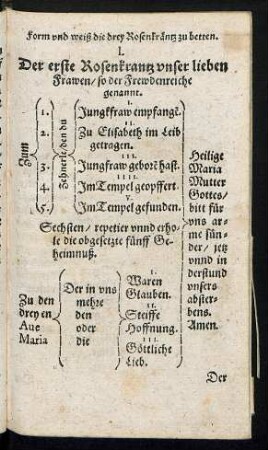 Form vnd weiß die drey Rosenkräntz zu betten.
I.
Der erste Rosenkrantz vnser lieben
Frawen/ so der Frewdenreiche
genannt.
Zum
1.
2.
3.
4.
5.
Zehnerle/den du
I.
Jungkfraw empfangẽ.
II.
Zu Elisabeth im Leib
getragen.
III.
Jungfraw geborẽ hast.
IIII.
Im Tempel geopffert.
V.
Im Tempel gefunden.
Sechsten/ repetier vnnd erho-
le die obgesetzte fünff Ge-
heimnuß.
Zu den
dreyen
Aue
Maria
Der in vns
mehre
den
oder
die
I.
Waren
Glauben.
II.
Steiffe
Hoffnung.
III.
Göttliche
Lieb.
Heilige
Maria
Mutter
Gottes/
bitt für
vns ar-
me sün-
der/ jetz
vnnd in
der stund
vnsers
abster-
bens.
Amen.
Der